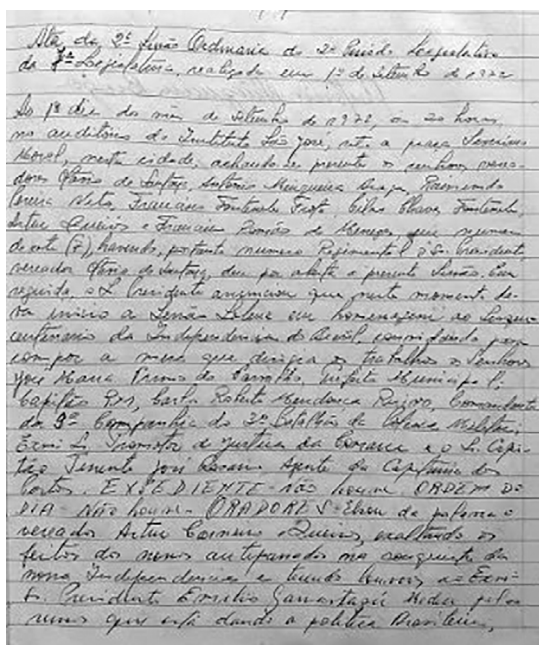 Ata, da 2ª Sessão Ordinaria do 2º Periodo Legislativo
da 7ª Legislatura, realizada em 1º de Setembro de 1972
Ao 1º dia do mes de Setembro de 1972 às 20 horas,
no auditorio do Instituto São José, sito a praça
Moral, nesta cidade, achando-se presente os senhores verea-
dores de Santos, Antonio Mangueira Braga, Raimundo
Neto, Francisco Fontenele Frota Chaves Fontenele,
Artur Queirós e Francisco de Menezes, que reuniam
de sete (7), havendo, portanto numero Regimental o Sr. Presidente
vereador de Santos, deu por aberta a presente Sessão. Em
seguida, o S. Presidente anunciou que neste momento da-
va inicio a Sessão Solene em homenagem ao Sesqui-
centenario da Independencia do Brasil, convidando para
compor a mesa que dirigia os trabalhos os Senhores
José Maria Primo de Carvalho, Prefeito Municipal,
Capitão Carlos Roberto Mendonça Comandante
da 3ª Companhia do 3º Batalhão da Policia Militar,
Exmo S. Promotor de justiça da Comarca e o S. Capi-
tão Tenente José Agente da Capitania dos
Portos. EXPEDIENTE - Não houve. ORDEM DO
DIA - Não houve - ORADORES - da palavra o
vereador Artur Carneiro Queirós, exaltando os
feitos dos nossos antipassados na conquista da
nossa Independencia e tecendo louvores ao Exmo
S. Presidente Emilio Garrastazú Medici pelos
rumos que está dando a politica Brasileira,